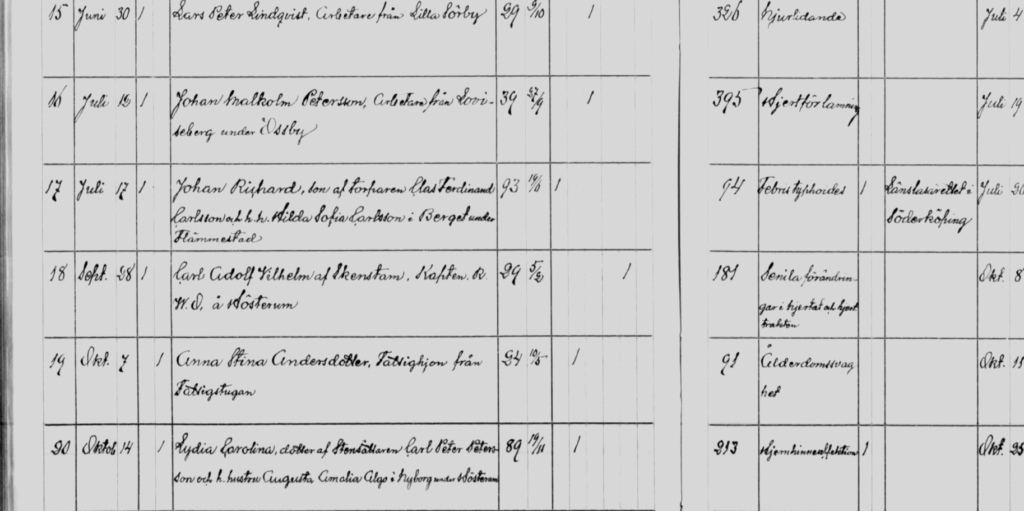 15 Juni 30 1 Lars Peter Lindqvist, Arbetare från Lilla Sörby 29 9/10 1 326 hjurlidande Juli 4
16 Juli 15 1 Johan Malkolm Petersson, Arbetare från Lovi- 39 27/9 1 395 Hjertförlamning Juli 19
seberg under Össby
17 Juli 17 1 Johan Richard, son af torparen Clas Ferdinand 93 1 94 Febris typhoides 1 Länslasarettet i Juli 20
Carlsson och h. h. Hilda Sofia Carlsson i Berget under Söderköping
Flämmestad
18 Sept. 28 1 Carl Adolf Vilhelm af Ekenstam, Kapten. R. 29 5/2 1 181 Senila förändrin- Okt. 8
W. O, å Hösterum gar i hjertat och hjert
trakten
19 Okt. 7 1 Anna Stina Andersdotter, Fattighjon från 24 10/5 1 91 Ålderdomssvag Okt. 15
Fattigstugan het
20 Oktob 14 1 Lydia Carolina, dotter af Statdrängen Carl Peter Peters- 89 19/11 1 213 Hjernhinneaffektion 1 Okt. 25
son och h. hustru Augusta Amalia Algo i Nyborg under Hösterum